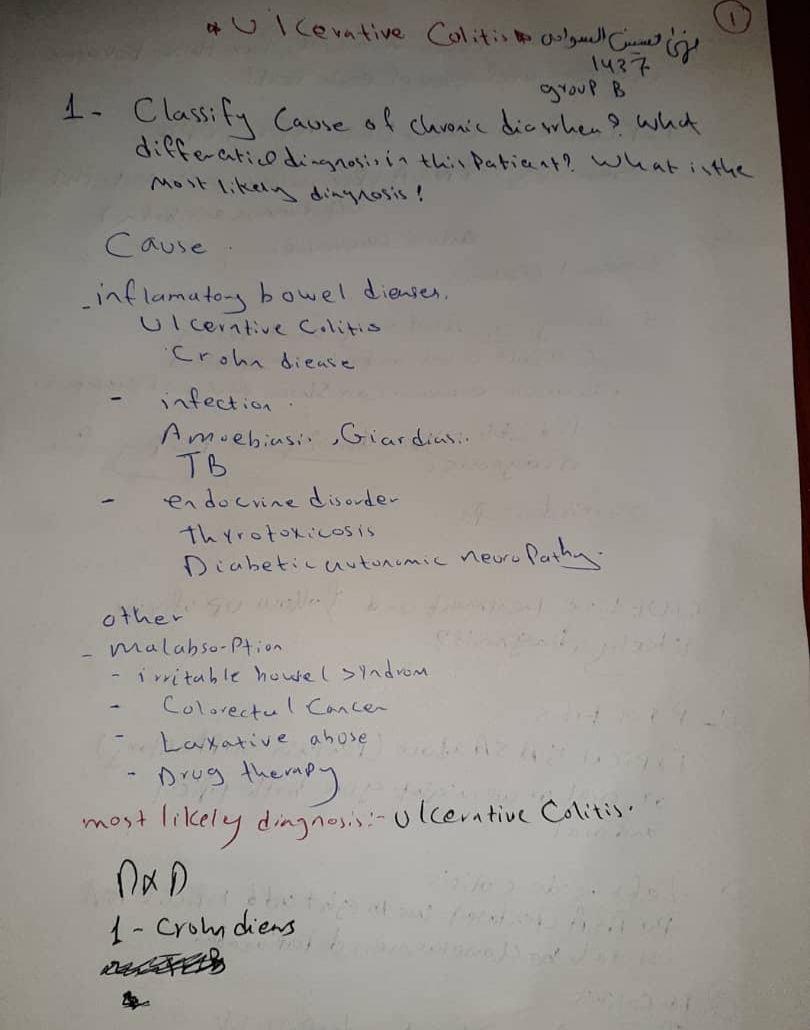 * Ulcerative Colitis *
1
حسين
1437
group B
1- Classify Cause of chronic diarrhea? What
differential diagnosis in this Patient? What is the
most likely diagnosis!
Cause.
- inflamatory bowel dieases.
Ulcerative Colitis
Crohn diease
- infection.
Amoebiasis, Giardiasis.
TB
- endocrine disorder
thyrotoxicosis
Diabetic autonomic neuroPathy.
other
- malabsorPtion
- irritable bowel syndrom
- Colorectal Cancer
- Laxative abuse
- Drug therapy
most likely diagnosis:- Ulcerative Colitis.
DxD
1- Crohn diens